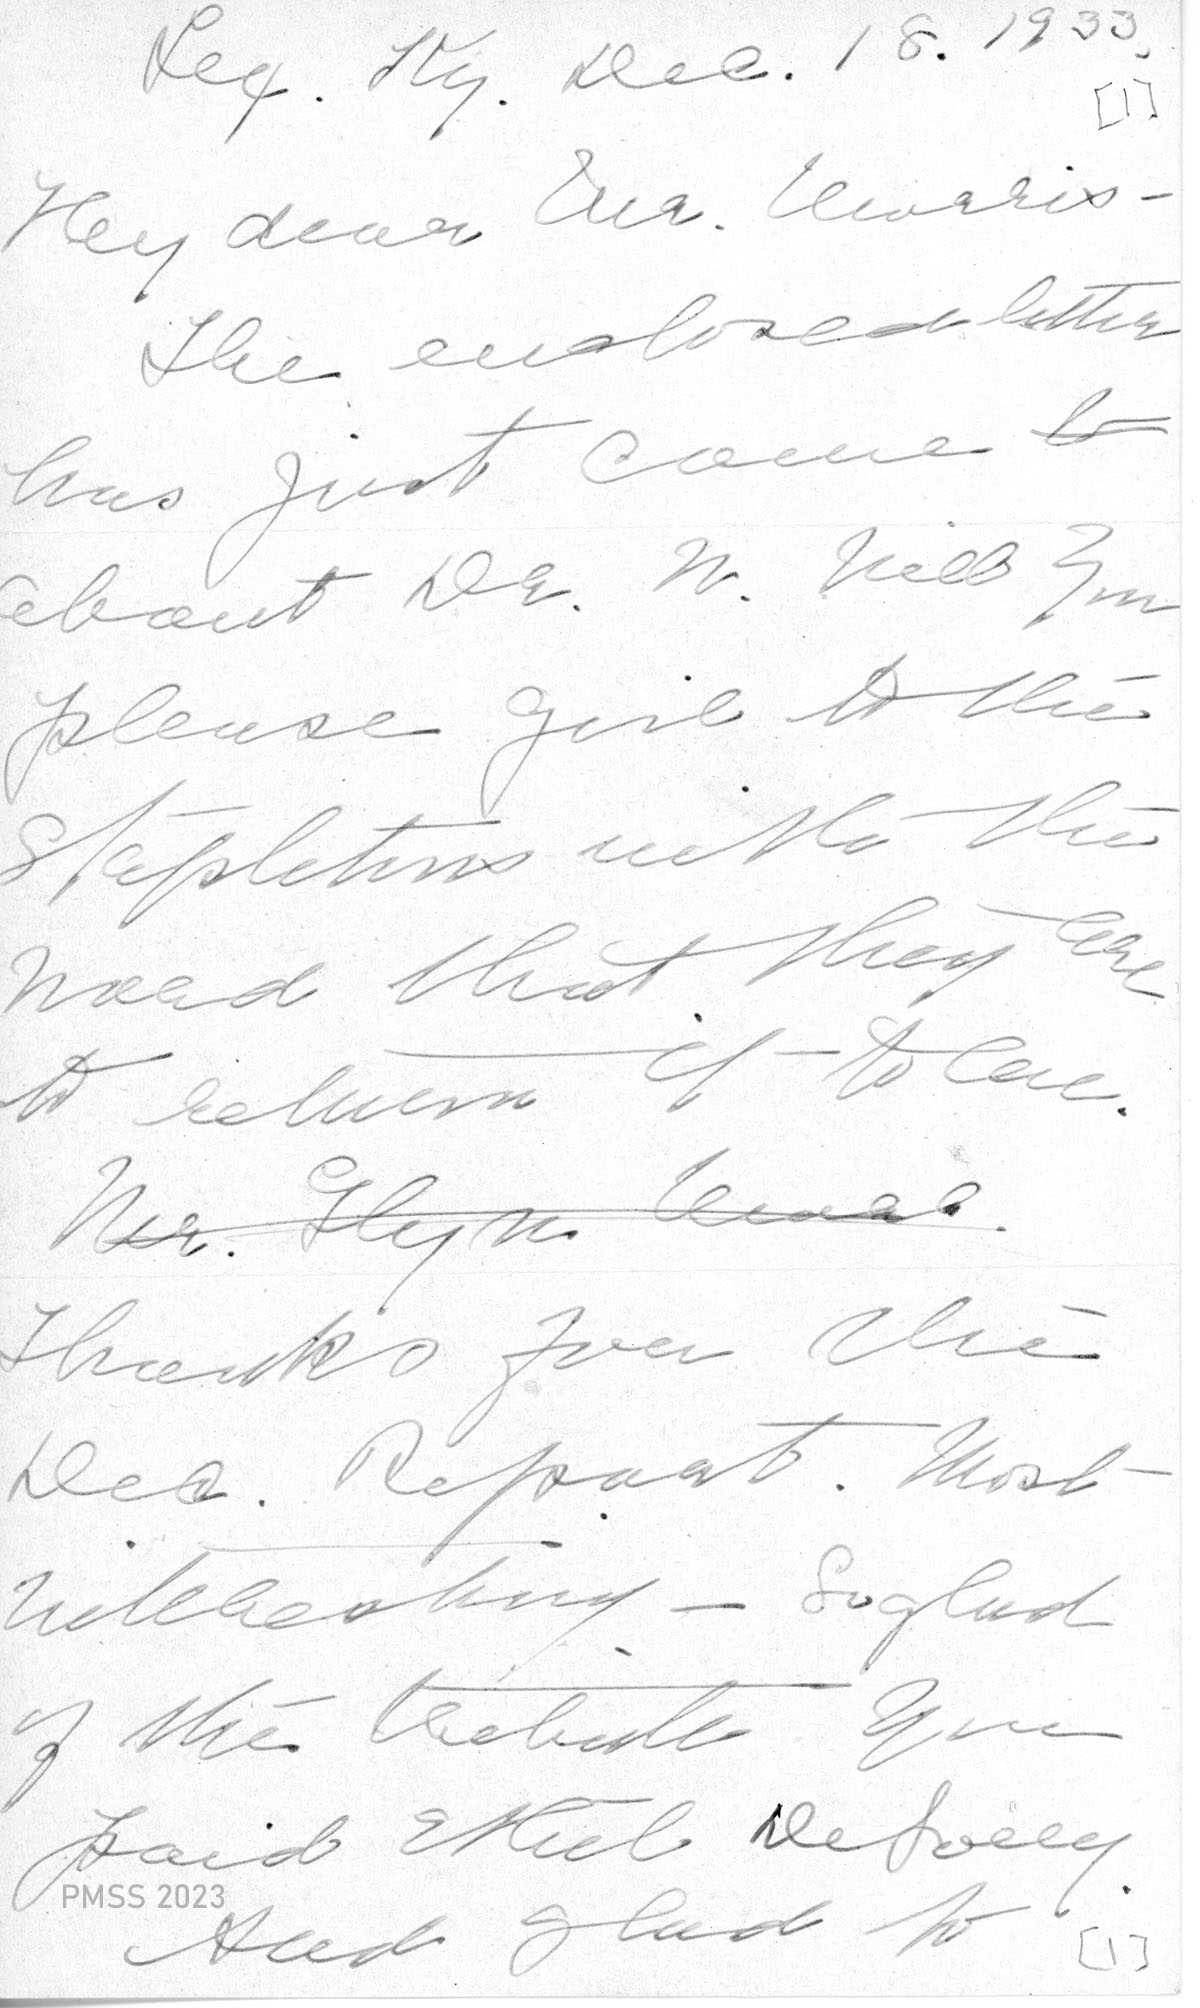 Lex. Ky. Dec. 18. 1933.
[1]
My dear Mr. Morris-
The enclosed letter
has just come to
about Dr. W. Will You
please give to the
Stapletons with the
word that they are
to return it to me.
Mr. Glyn
Thanks for the
Dec. Report. Most
interesting - So glad
of the tribute you
paid Ethel DeLong.
And glad to
[1]
PMSS 2023